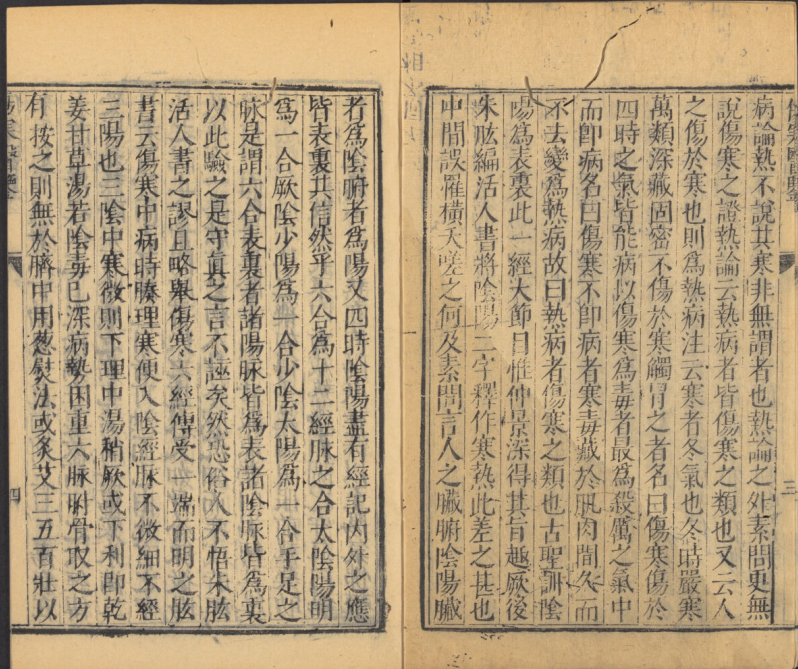 病論熱不說其寒非無謂者也熱論之外素問更無
說傷寒之證熱論云熱病者皆傷寒之類也又云人
之傷於寒也則爲熱病注云寒者冬氣也冬時嚴寒
萬類深藏固密不傷於寒觸冒之者名曰傷寒傷於
四時之氣皆能病以傷寒爲毒者最爲殺厲之氣中
而卽病名曰傷寒不卽病者寒毒藏於肌肉間久而
不去變爲熱病故曰熱病者傷寒之類也古聖訓陰
陽爲表裏此一經大節目惟仲景深得其旨趣厥後
朱肱編活人書將陰陽二字釋作寒熱此差之甚也
中間誤罹橫夭嗟之何及素問言人之臟腑陰陽臟
三
者爲陰腑者爲陽又四時陰陽盡有經記內外之應
皆表裏其信然乎六合爲十二經脉之合太陰陽明
爲一合厥陰少陽爲一合少陰太陽爲一合手足之
脉是謂六合表裏者諸陽脉皆爲表諸陰脉皆爲裏
以此驗之是守眞之言不誣矣然恐俗人不悟朱肱
活人書之謬且略舉傷寒六經傳受一端而明之肱
書云傷寒中病時腠理寒便入陰經脉不微細不經
三陽也三陰中寒微則下理中湯稍厥或下利卽乾
姜甘草湯若陰毒已深病勢困重六脉附骨取之方
有按之則無於臍中用葱熨法或灸艾三五百壯以
四